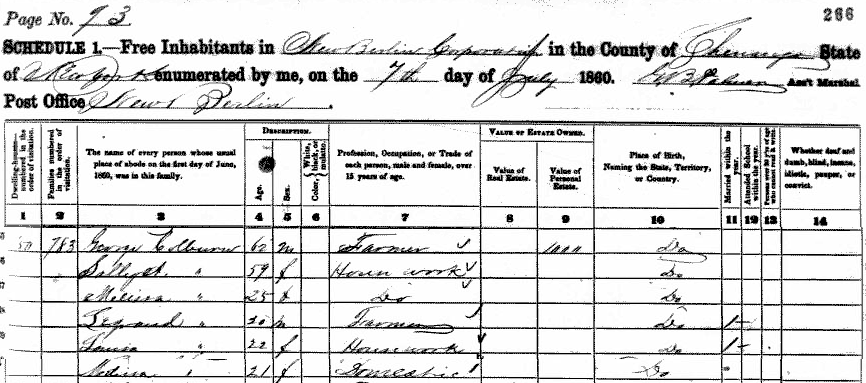 Page No. 93
266
SCHEDULE 1.—Free Inhabitants in New Berlin Corporation in the County of Chenango State
of New York enumerated by me, on the 7th day of July 1860. Ass't Marshal.
Post Office New Berlin
Dwelling-houses—numbered in the order of visitation.
Families numbered in the order of visitation.
The name of every person whose usual place of abode on the first day of June, 1860, was in this family.
DESCRIPTION.
Age.
Sex.
Color, { White, black, or mulatto.
Profession, Occupation, or Trade of each person, male and female, over 15 years of age.
VALUE OF ESTATE OWNED.
Value of Real Estate.
Value of Personal Estate.
Place of Birth, Naming the State, Territory, or Country.
Married within the year.
Attended School within the year.
Persons over 20 y'rs of age who cannot read & write.
Whether deaf and dumb, blind, insane, idiotic, pauper, or convict.
1 2 3 4 5 6 7 8 9 10 11 12 13 14
783 George Colburn 62 m Farmer 1000 Do
Sally " 59 f House work Do
Melissa " 25 f Do Do
Legrand " 30 m Farmer Do 1
Louisa " 22 f House work Do 1
" 21 f Domestic Do